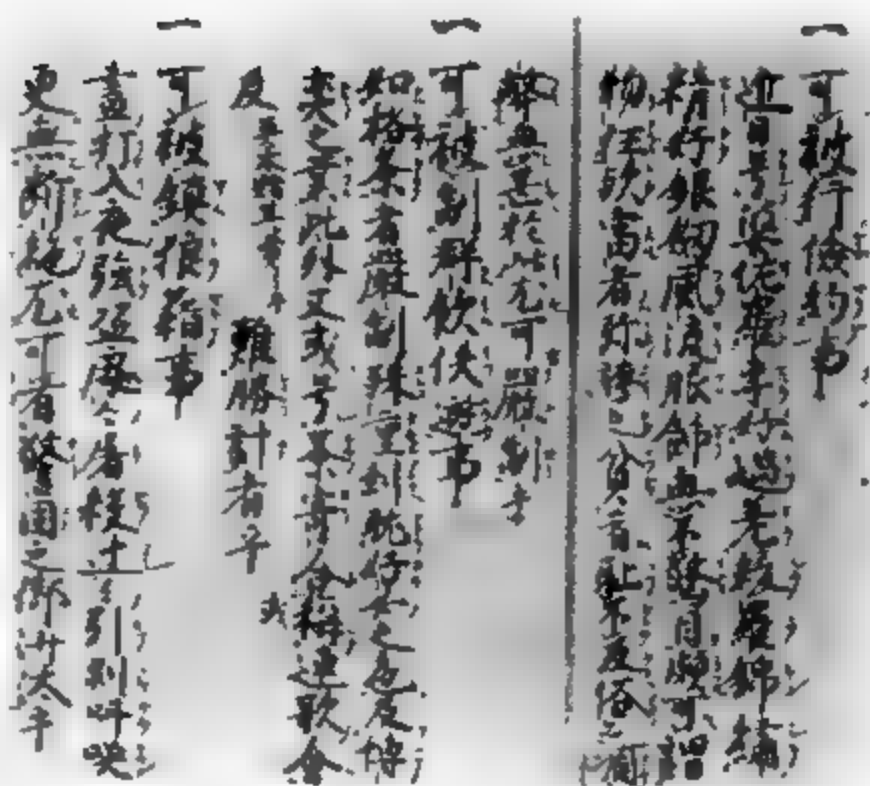 一 可被行倹約事
近日号婆佐羅専好過差綾羅錦繍
精好銀釼風流服飾無不驚目頗可謂
物狂歟富者弥誇之貧者恥不及俗之凋
弊無甚於此尤可厳制乎
一 可被制群飲佚遊事
如格条者厳制殊重剰耽好女之色及博
奕之業此外又或号茶寄合或称連歌会
及莫太賭其費難勝計者乎
一 可被鎮狼藉事
昼打入夜強盗処々屠殺辻々引剥叫喚
更無断絶尤可有警固之御沙汰乎